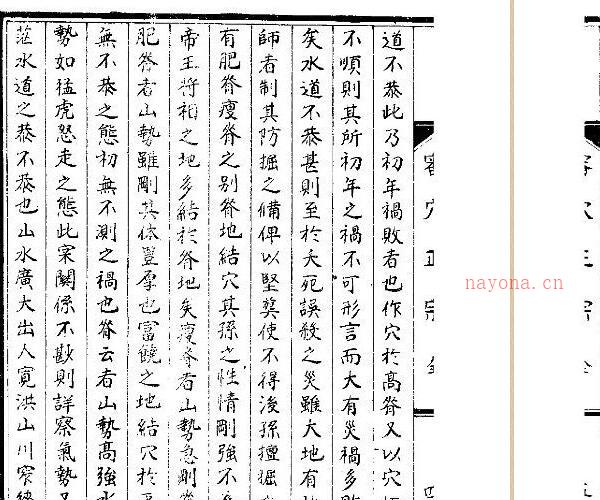 道不恭此乃初年禍敗者也作穴於高脊又以穴
不順則其所初年之禍不可形言而大有災禍多
矣水道不恭甚則至於夭死誤殺之災雖大地有
師者制其防掘之備俾以堅奠使不得後孫擅掘
有肥脊瘦脊之别脊地結穴其孫之性情剛強不
帝王將相之地多結於脊地矣瘦脊者山勢急剛
肥脊者山勢雖剛其体豐厚也富饒之地結穴於
無不恭之態初無不測之禍也脊云者山勢高強水
勢如猛虎怒走之態此案關係不歇則詳察氣勢又
茫水道之恭不恭也山水廣大出人寬洪山川窄
穴正宗
nayona.cn